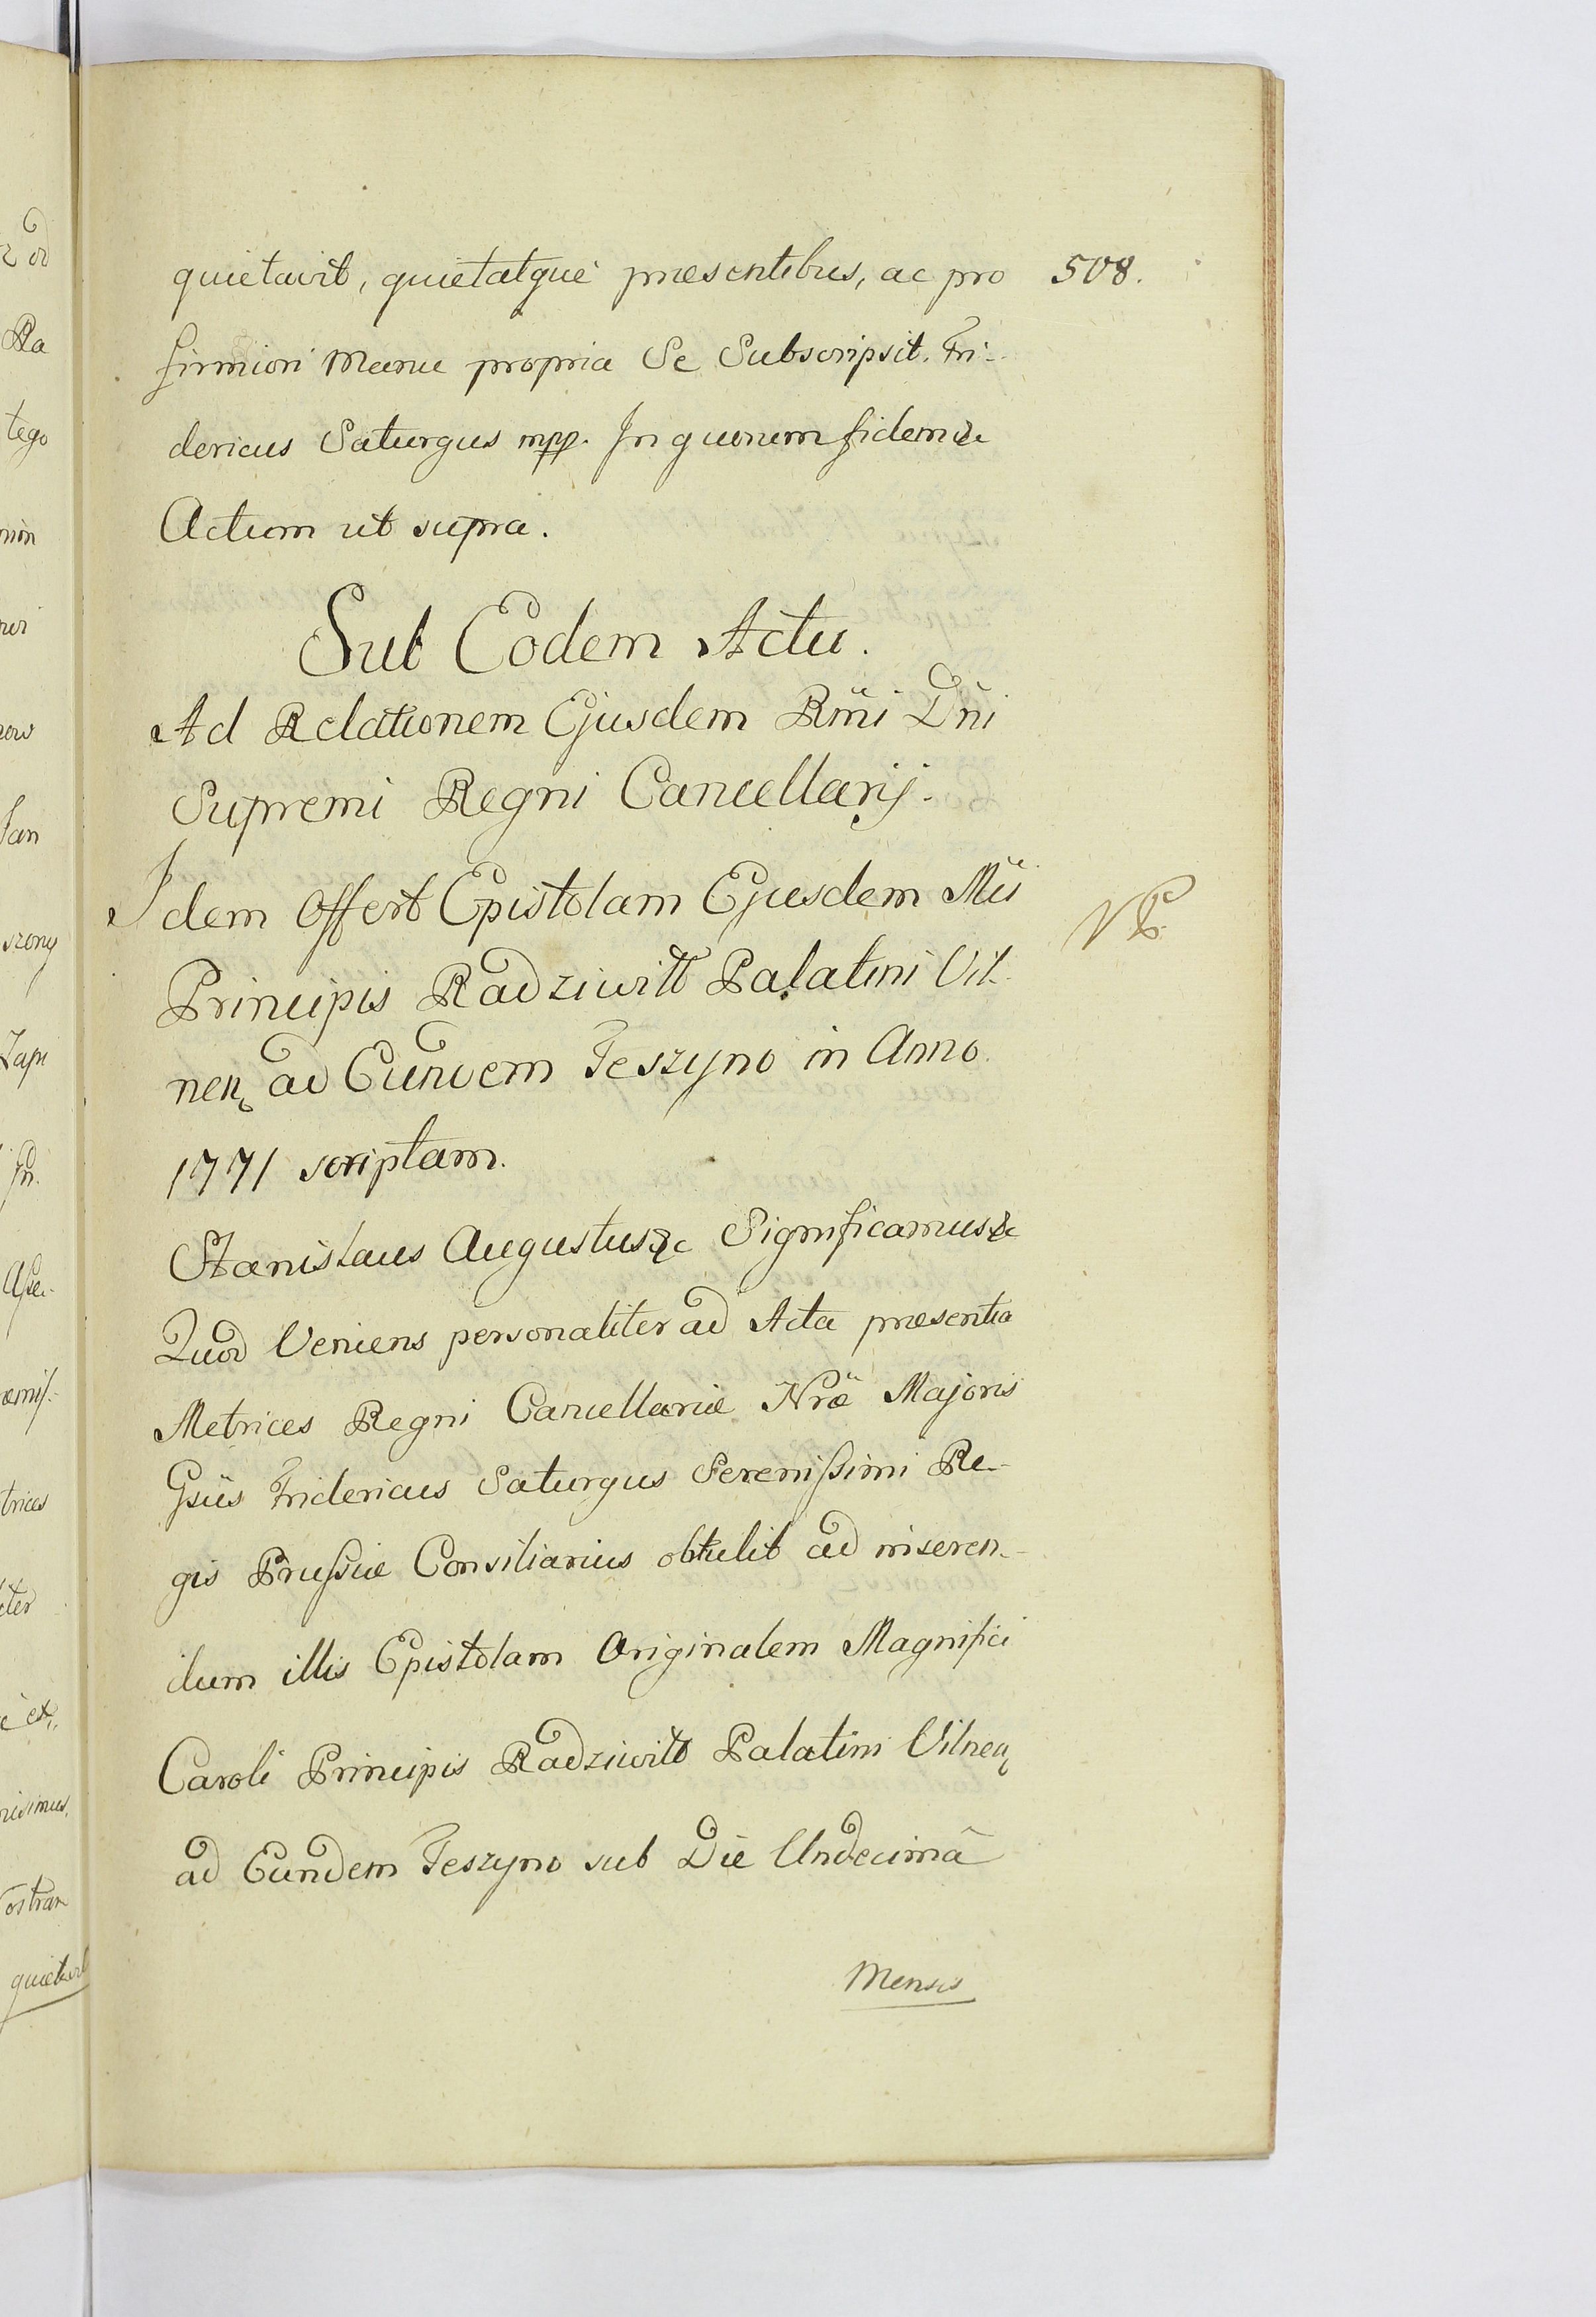 quietavit, quietatque praesentibus, ac pro 508.
firmiori Manu propria Se Subscripsit. Fri-
dericus Saturgus mpp. In quorum fidem &c
Actum ut supra.
Sub Eodem Actu.
Ad Relationem Ejusdem Rm̃i Dñi
Supremi Regni Cancellarij.
Idem Offert Epistolam Ejusdem Mci
Principis Radziwiłł Palatini Vil-
nen ad Eundem Teszyno in Anno
1771 scriptam.
Stanislaus Augustus &c Significamus &c
Quod Veniens personaliter ad Acta praesentia
Metrices Regni Cancellariae Nrae Majoris
Gsus Fridericus Saturgus Serenissimi Re-
gis Prussiae Consiliarius obtulit ad inseren-
dum illis Epistolam Originalem Magnifici
Caroli Principis Radziwiłł Palatini Vilnen
ad Eundem Teszyno sub Die Undecimâ
Mensis